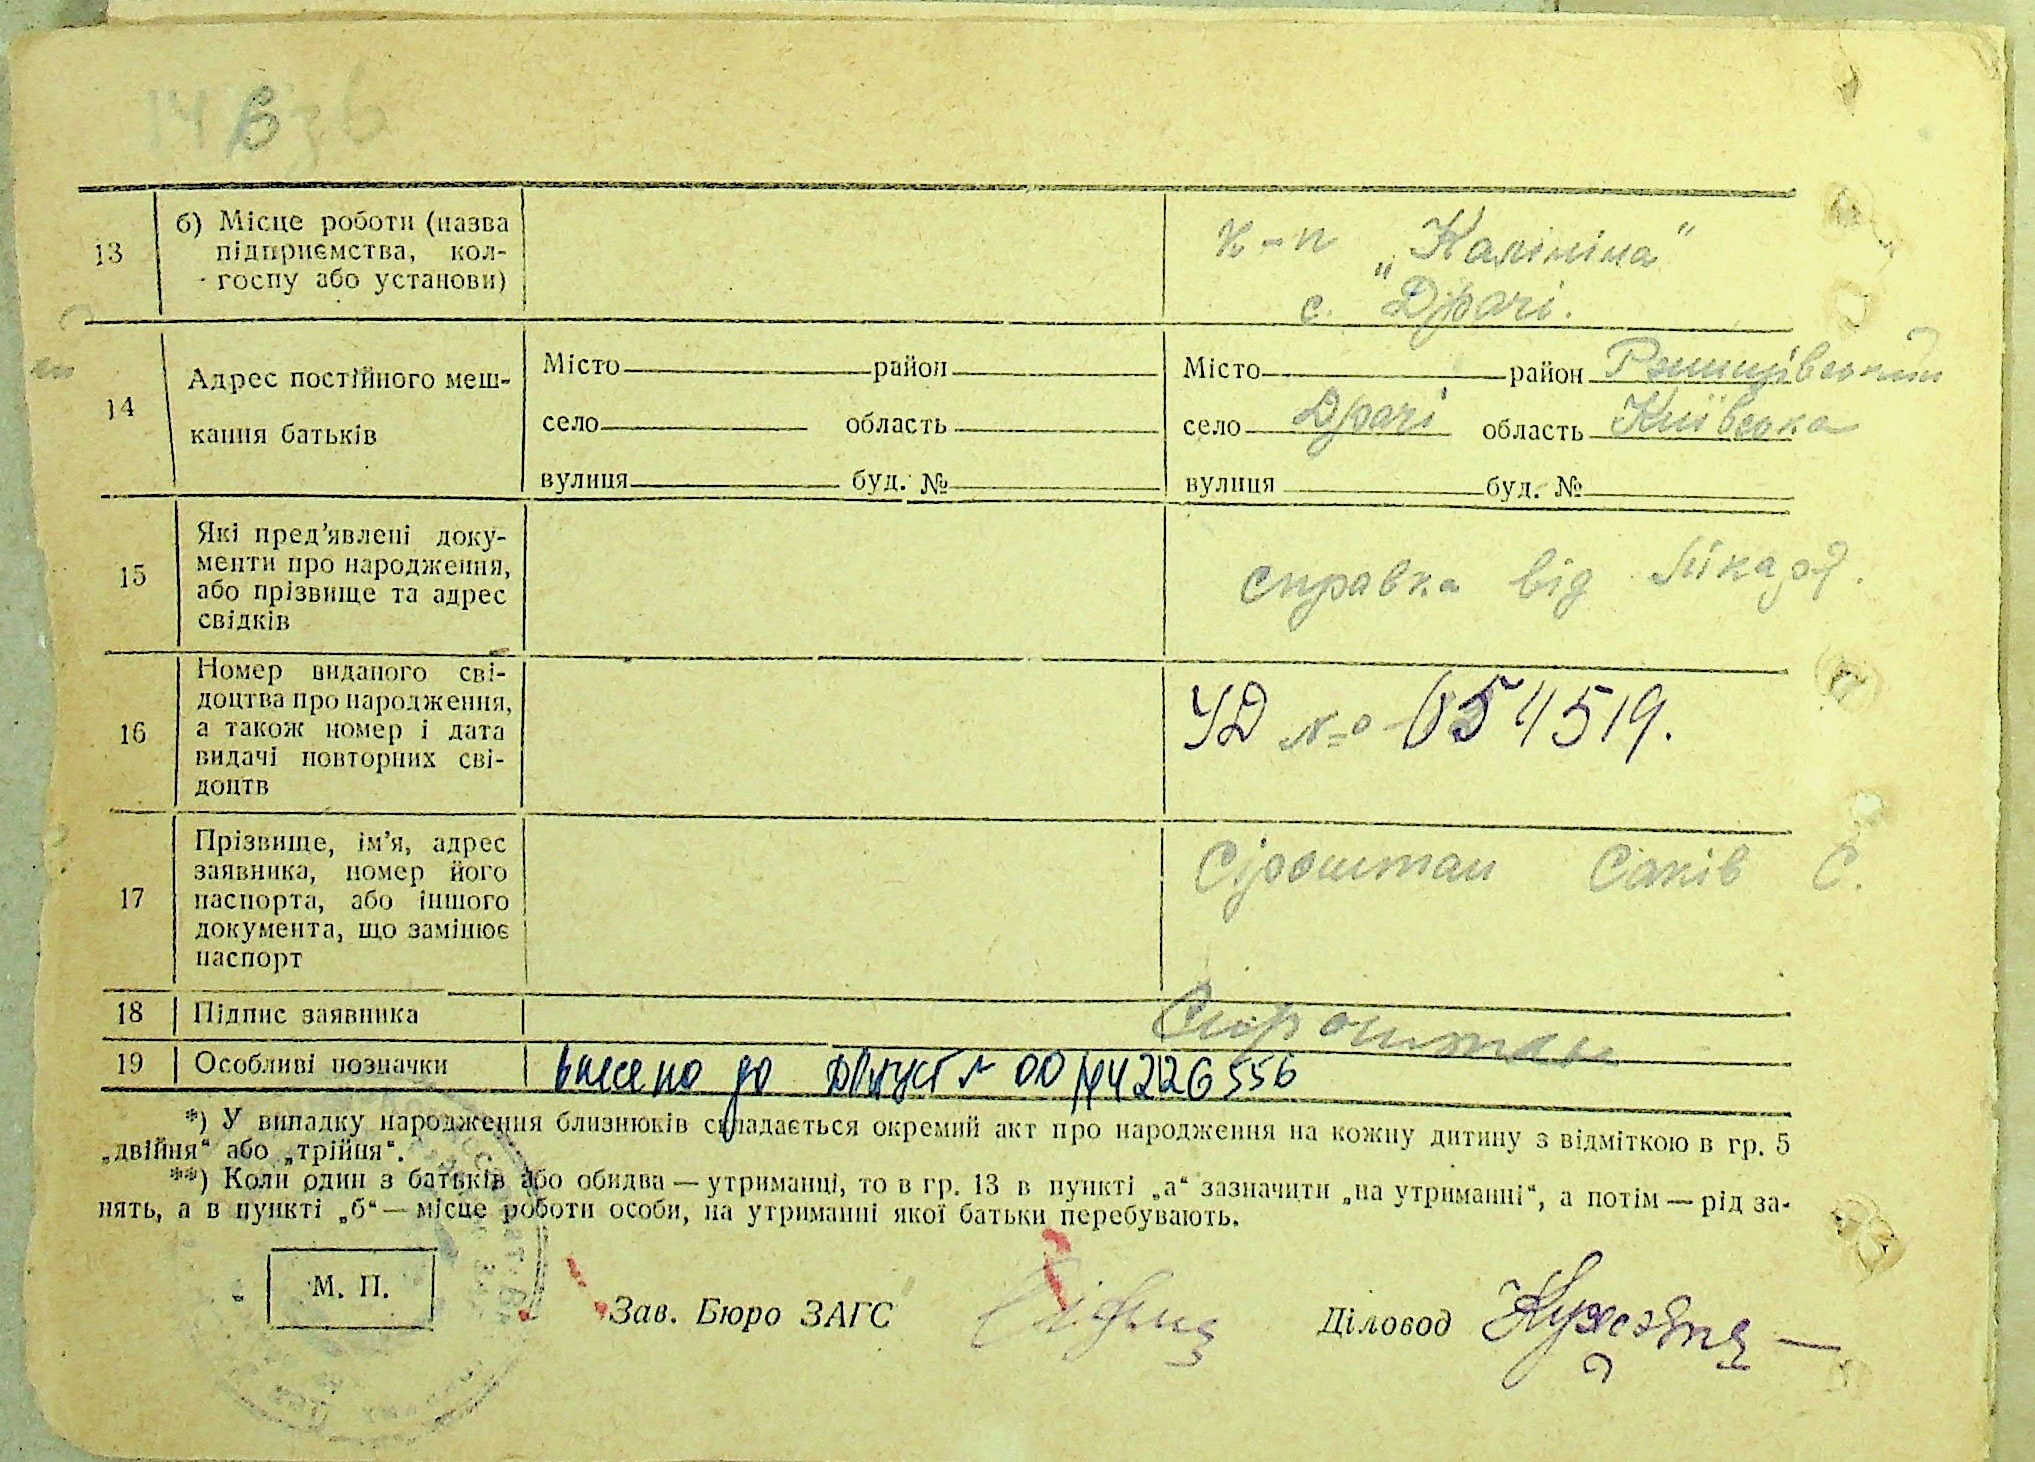 13
б) Місце роботи (назва
підприємства, кол-
госпу або установи)
к-п „Калініна"
с. Драчі.
14
Адрес постійного меш-
кання батьків
Місто район
село область
вулиця буд. №
Місто район
село Драчі область Київська
вулиця буд. №
15
Які пред'явлені доку-
менти про народження,
або прізвище та адрес
свідків
справка від лікаря.
16
Номер виданого сві-
доцтва про народження,
а також номер і дата
видачі повторних сві-
доцтв
УД №
17
Прізвище, ім'я, адрес
заявника, номер його
паспорта, або іншого
документа, що замінює
паспорт
Сіроштан С.
18
Підпис заявника
Сіроштан
19
Особливі позначки
внесено до
*) У випадку народження близнюків складається окремий акт про народження на кожну дитину з відміткою в гр. 5
„двійня“ або „трійня“.
**) Коли один з батьків або обидва — утриманці, то в гр. 13 в пункті „а“ зазначити „на утриманні“, а потім — рід за-
нять, а в пункті „б“ — місце роботи особи, на утриманні якої батьки перебувають.
М. П.
Зав. Бюро ЗАГС
Діловод